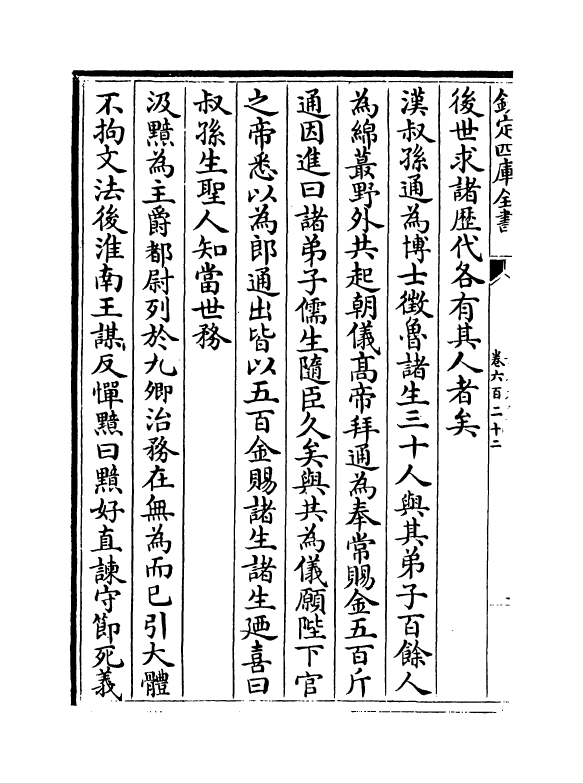 欽定四庫全書
卷六百二十二
後世求諸歴代各有其人者矣
漢叔孫通為博士徴魯諸生三十人與其弟子百餘人
為綿蕞野外共起朝儀髙帝拜通為奉常賜金五百斤
通因進曰諸弟子儒生隨臣久矣與共為儀願陛下官
之帝悉以為郎通出皆以五百金賜諸生諸生廼喜曰
叔孫生聖人知當世務
汲黯為主爵都尉列於九卿治務在無為而已引大體
不拘文法後淮南王謀反憚黯曰黯好直諫守節死義